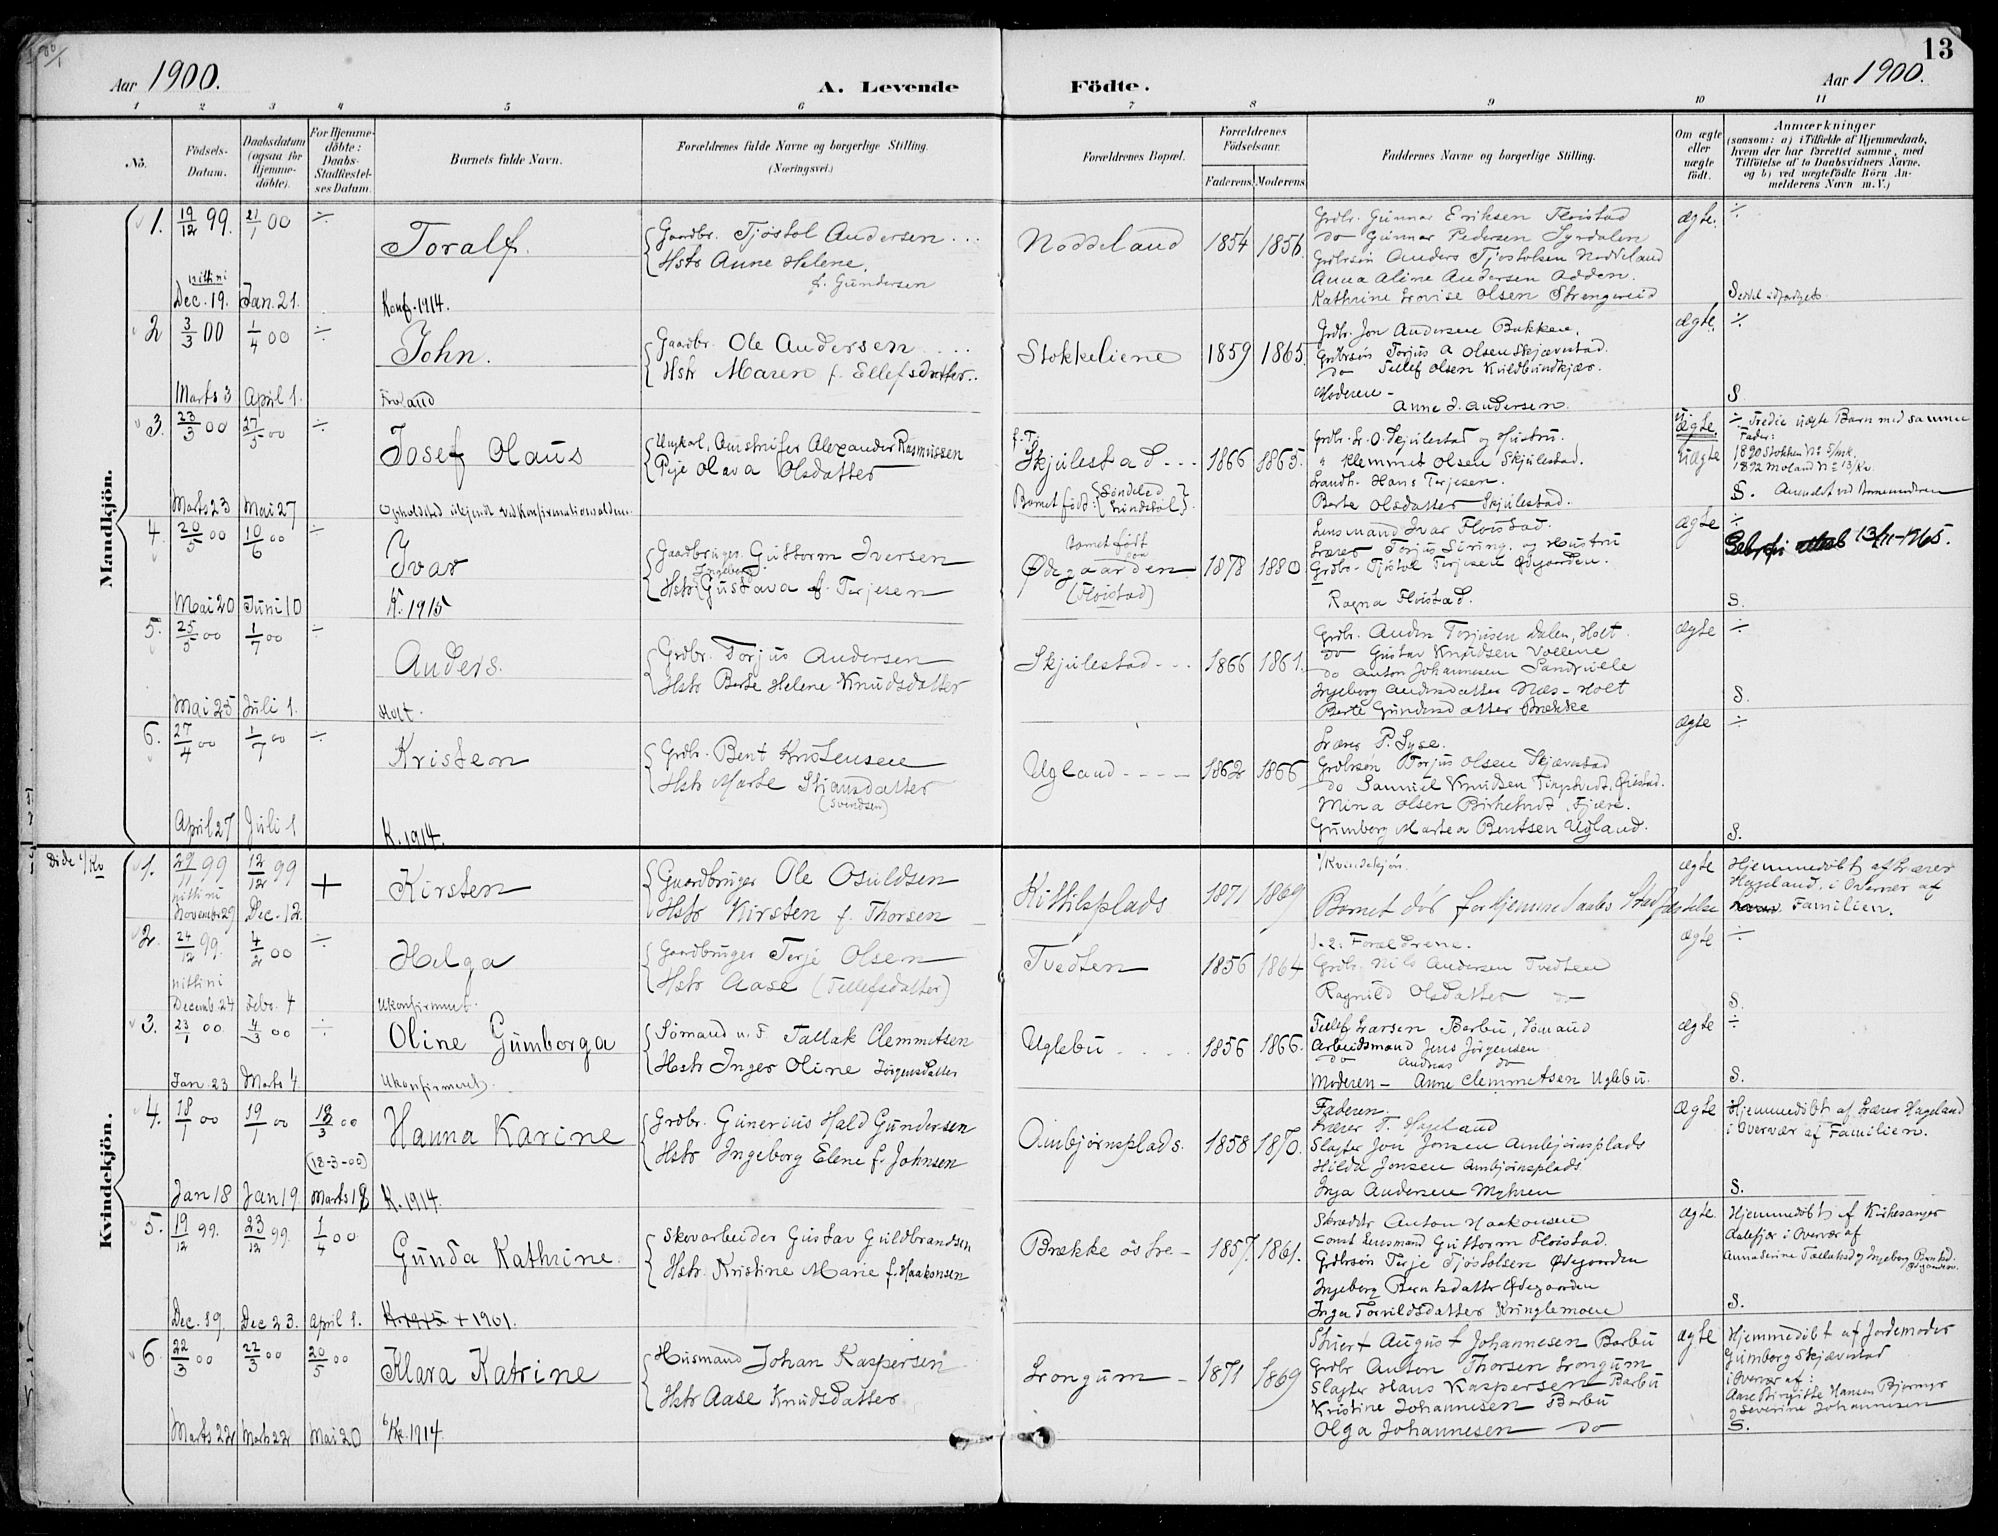 Aar 1900.
A. Levende Födte.
Aar 1900.
13
1 2 3 4 5 6 7 8 9 10 11
No.
Födsels-Datum.
Daabsdatum (ogsaa for Hjemme-döbte).
For Hjemme-döbte: Daabs-Stadfæstel-ses Datum.
Barnets fulde Navn.
Forældrenes fulde Navne og borgerlige Stilling. (Næringsvei.)
Forældrenes Bopæl.
Forældrenes Födselsaar.
Faderens. Moderens.
Faddernes Navne og borgerlige Stilling.
Om ægte eller uægte födt.
Anmærkninger
(saasom: a) i Tilfælde af Hjemmedaab, hvem der har forrettet samme, med Tilföielse af to Daabsvidners Navne, og b) ved uægtefödte Börn An-melderens Navn m. V.)
Mandkjön.
1. 19/12 99. 21/1 00 ÷
Toralf.
Gaardbr. Tjöstol Andersen
Hstr Anne Helene
f. Gundersen
Noddeland 1854 1856.
Grdbr. Gunnar Eriksen Floistad
do Gunnar Pedersen Syrdalen
Grdbrsön Anders Tjostolsen Noddeland
Anna Aline Andersen Odden.
Kathrine Lovise Olsen Strengereid
ægte. ÷
nitti ni
Dec. 19. Jan. 21.
Konf. 1914.
2 3/3 00 1/4 00 ÷
John.
Gaardbr. Ole Andersen
Hstr Maren f. Ellefsdatter
Stokkeliene 1859 1865.
Grdbr. Jon Andersen Bakken.
Grdbrsön Torjus A Olsen Skjævestad.
do Tellef Olsen
Moderen -
Anne J. Andersen.
ægte. ÷
S
Marts 3 April 1.
Froland
3. 23/3 00 27/5 00 ÷
Josef Olaus
Ungkarl, Alexander Rasmussen
Pige Olava Olsdatter
Skjulestad 1866 1865.
Barnet född: Söndeled
Klemmet Olsen Skjulestad.
Landh. Hans Terjesen.
Berte Olsdatter Skjulestad.
Uægte
÷ Tredie uægte Barn med samme Fader:
1890 Stokken No 5/mk.
1892 Moland No 13/Kv.
S.
Marts 23 Mai 27
Opholdsted ukjendt ved Konfirmationsalderen
4. 20/5 00 10/6 00 ÷
Ivar
Gaardbruger Guttorm Iversen
Hstr Ingeborg Gustava f. Terjesen
Barnet født paa
Ødegaarden. 1878 1880
(Floistad)
Lensmand Ivar Floistad.
Lærer Torjus Siring. og Hustru
Grdbr. Tjöstol Terjesen Ødegaarden.
Ragna Floistad.
ægte ÷
13/11-1965.
S.
Mai 20 Juni 10
K. 1915
5. 25/5 00 1/7 00 ÷
Anders.
Grdbr. Torjus Andersen
Hstr Berte Helene Knudsdatter
Skjulestad 1866 1861.
Grdbr. Anders Torjusen Dalen, Holt.
do Gustav Knudsen Vollene
do Anton Johannesen
Ingeborg Andersdatter Næs - Holt
Berte Gundersdatter Brække
ægte ÷
S.
Mai 25 Juli 1.
Holt.
6. 27/4 00 1/7 00 ÷
Kristen
Grdbr. Bent Kristensen
Hstr Marte Stiansdatter
(Svendsen)
Ugland 1862 1866
Lærer P. Lyse.
Grdbrsön Torjus Olsen Skjævestad
do Samuel Knudsen Tingstvedt, Øiestad.
Mina Olsen Birketvedt, Fjære.
Gumborg Martea Bentsen Ugland.
ægte ÷
S.
April 27 Juli 1
K. 1914.
Kvindekjön.
Döde 1/Kv
1. 29/11 99 12/12 99 +
Kirsten
Gaardbruger Ole Osuldsen
Hstr Kirsten f. Thorsen
Kittilsplads 1871 1869
1/Kvindekjön.
Barnet dör för Hjemmedaabs Stadfæstelse
ægte
Hjemmedöbt af Lærer
Hageland, i Overvær af
Familien.
nitti ni
November 29 Dec. 12.
2. 24/12 99. 4/2 00 ÷
Helga
Gaardbruger Terje Olsen
Hstr Aase (Tellefsdatter)
Tvedten 1856 1864
1-2: Forældrene.
Grdbr. Nils Andersen Tvedten
Ragnild Olsdatter do
ægte ÷
S.
nitti ni
Decemb. 24 Febr. 4
Ukonfirmeret.
3. 23/1 00 4/3 00 ÷
Oline Gumborga
Sömand Tallak Clemmetsen
Hstr Inger Oline Jörgensdatter
Uglebu 1856 1866.
Tellef Larsen Barbu, Sömand
Arbeidsmand Jens Jörgensen
do Andreas do
Moderen - Anne Clemmetsen Uglebu.
ægte ÷
S.
Jan 23 Marts 4
Ukonfirmeret.
4. 18/1 00 19/1 00 18/3 00
(18-3-00)
Hanna Karine
Grdbr. Gunerius Hald Gundersen
Hstr Ingeborg Elene f. Johnsen
Ambjörnsplads. 1858 1870.
Faderen.
Lærer T. Hageland
Slagter Jon Jensen Ambjörnsplads
Hilda Jensen Ambjörnsplads
Inga Andersen Myhren
ægte
Hjemmedöbt af Lærer Hageland
i Overvær af Familien.
S.
Jan 18 Jan 19 Marts 18
K. 1914.
5. 19/12 99. 23/12 99. 1/4 00
Gunda Kathrine.
Skovarbeider Gustav Guldbrandsen
Hstr. Kristine Marie f. Haakonsen
Brække östre 1857. 1861.
Skrædder Anton Haakonsen
Const Lensmand Guttorm Floistad.
Grdbrsön Terje Tjöstolsen Ødegaarden
Ingeborg Berntsdatter Ødegaarden
Inga Torvildsdatter Kringlemoen
ægte.
Hjemmedöbt af Kirkesanger
Aalefjær i Overvær af
S.
Dec. 19. Dec 23. April 1.
K. 1915 + 1901.
6. 22/3 00 22/3 00 20/5 00
Klara Katrine
Husmand Johan Kaspersen
Hstr Aase Knudsdatter
Longum 1871 1869
Stuert August Johannesen Barbu
Grdbr Anton Thorsen Longum
Slagter Hans Kaspersen Barbu
Kristine Johannesen Barbu
Olga Johannesen do
ægte
Hjemmedöbt af Jordemoder
Gumborg Skjævestad
i Overvær af:
Aase Birgitte Hansen Bjormyr
og Severine Johannesen
S.
Marts 22 Marts 22 Mai 20
1914.